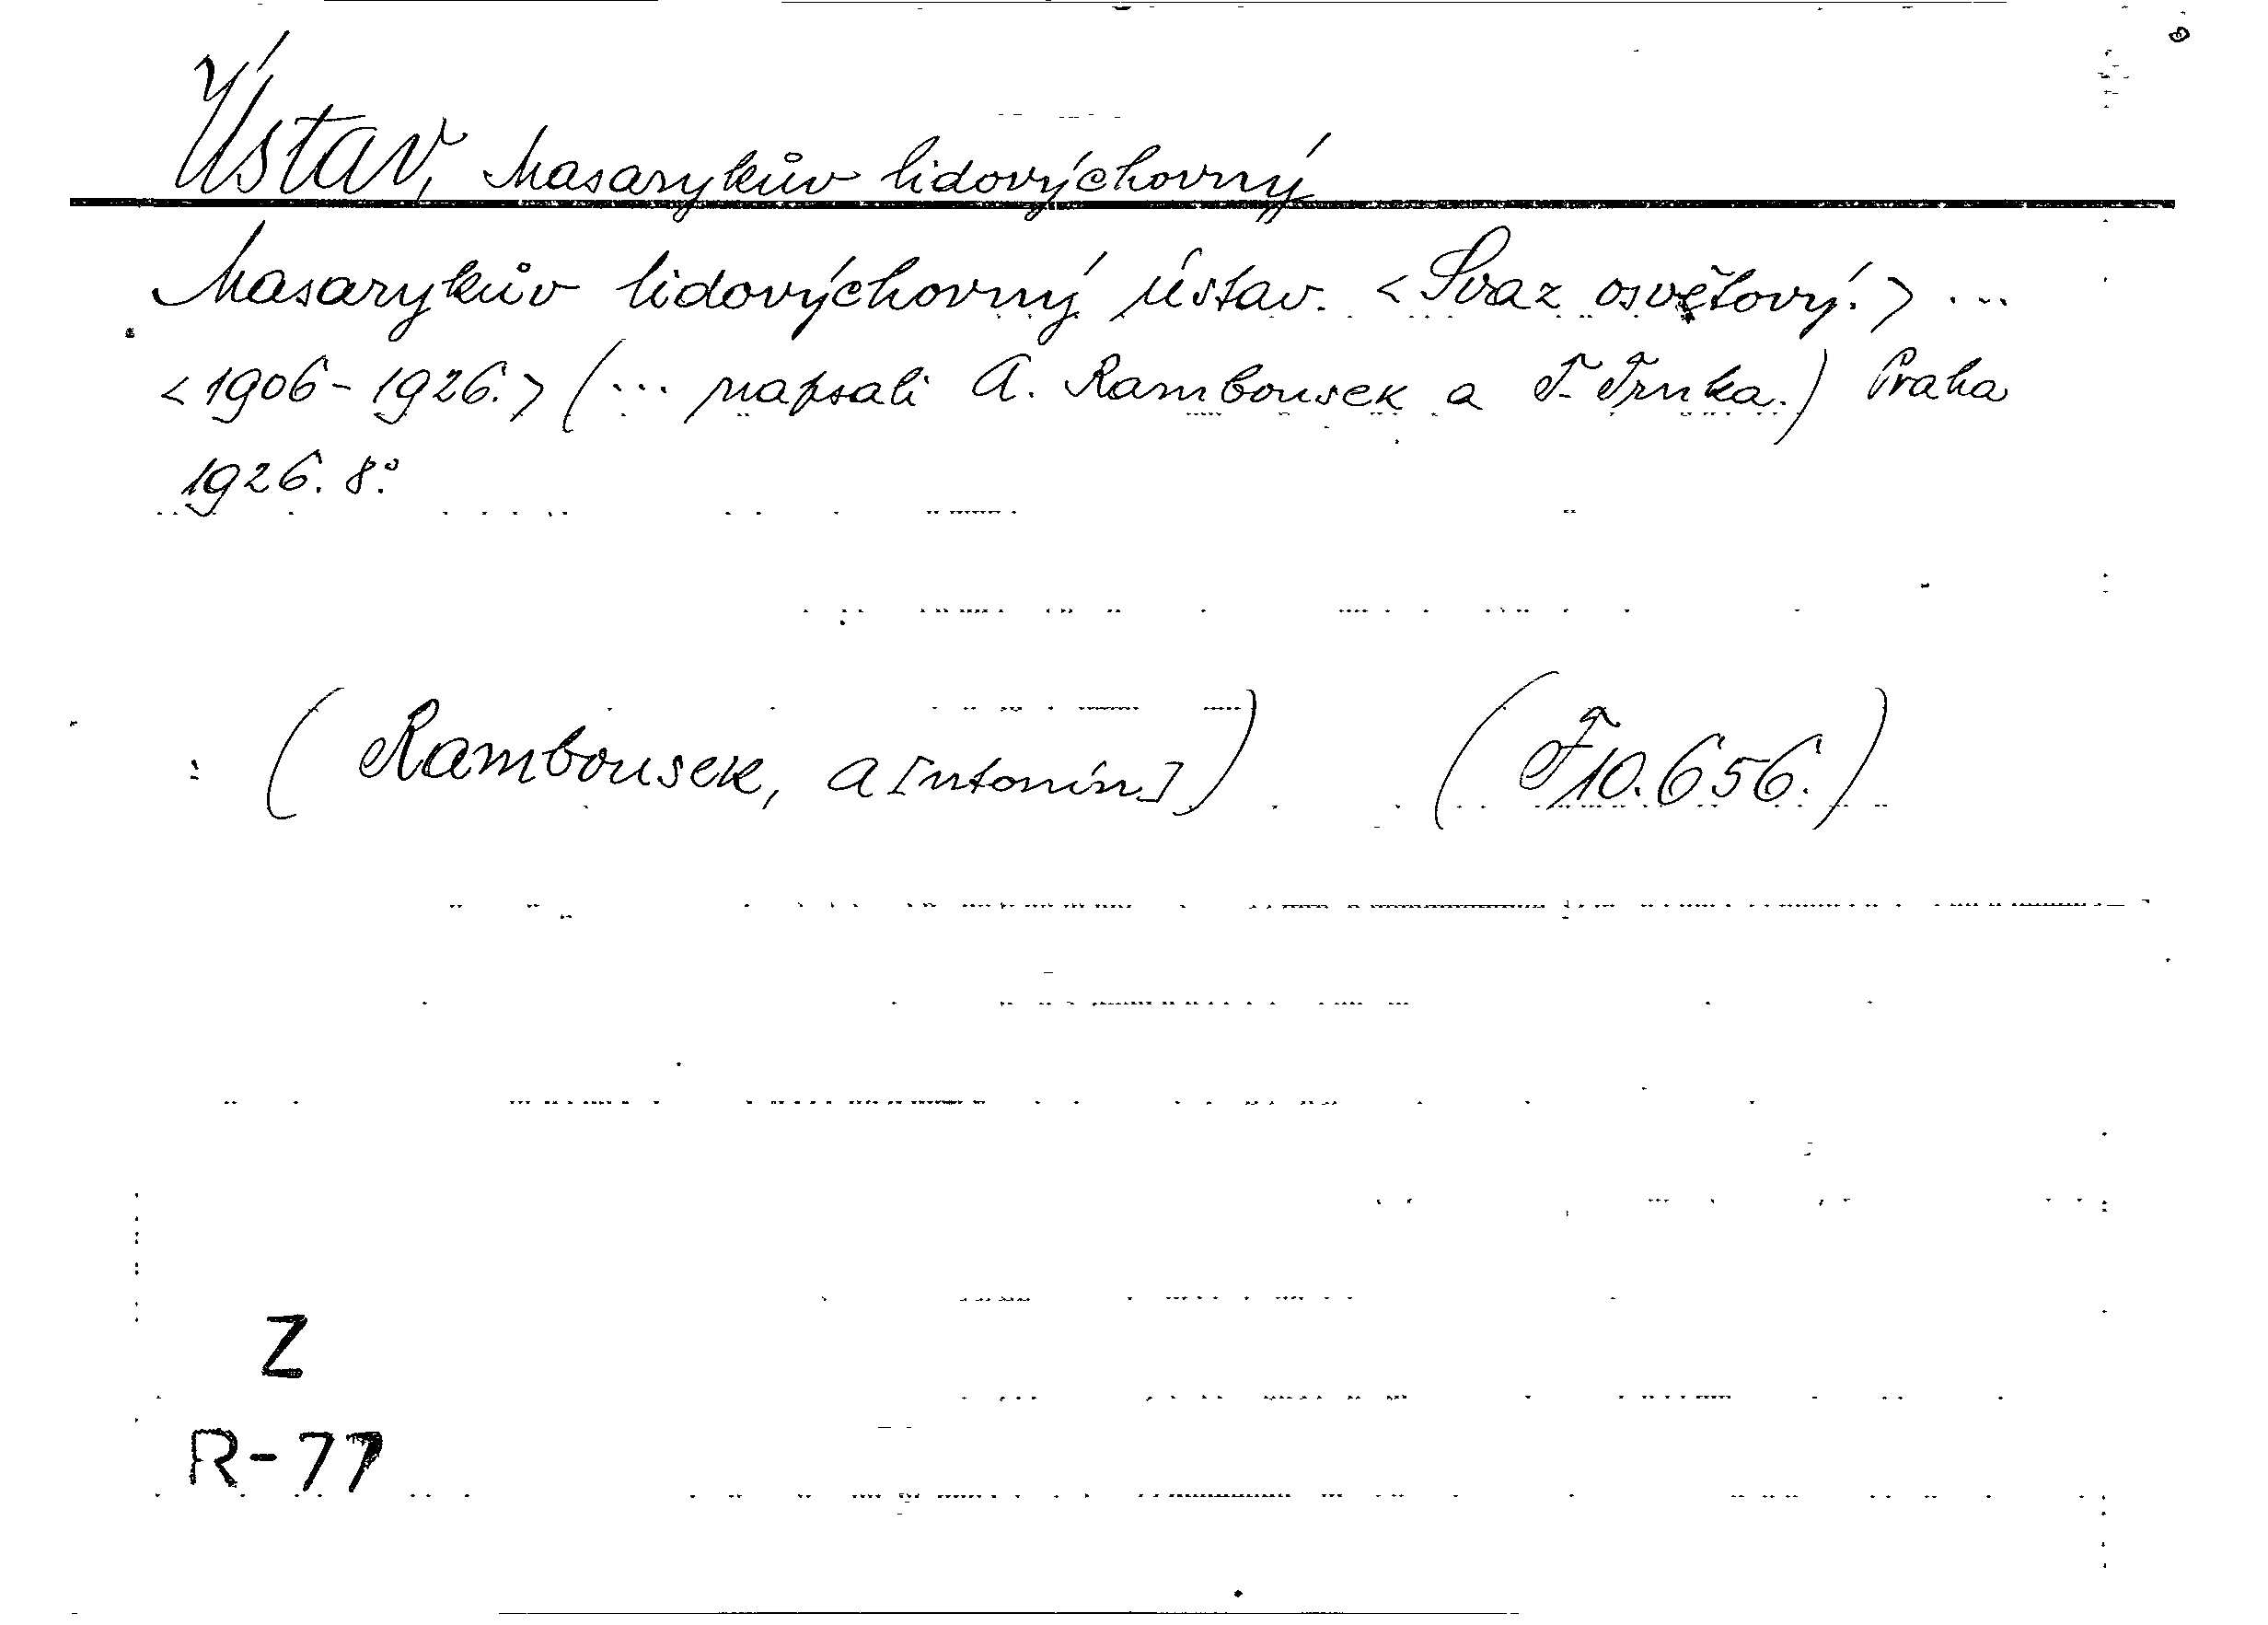 Ústav, Masarykův lidovýchovný
Masarykův lidovýchovný ústav. <Svaz osvětový.> ...
<1906-1926.> (... napsali A. Rambousek a F. Trnka.) Praha
1926. 8.°
(Rambousek, A[ntonín]) (F 10.656.)
Z
R-77